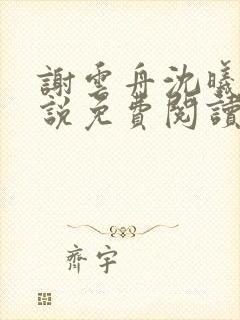 謝雲舟沈曦
說免費閱讀
齊宇